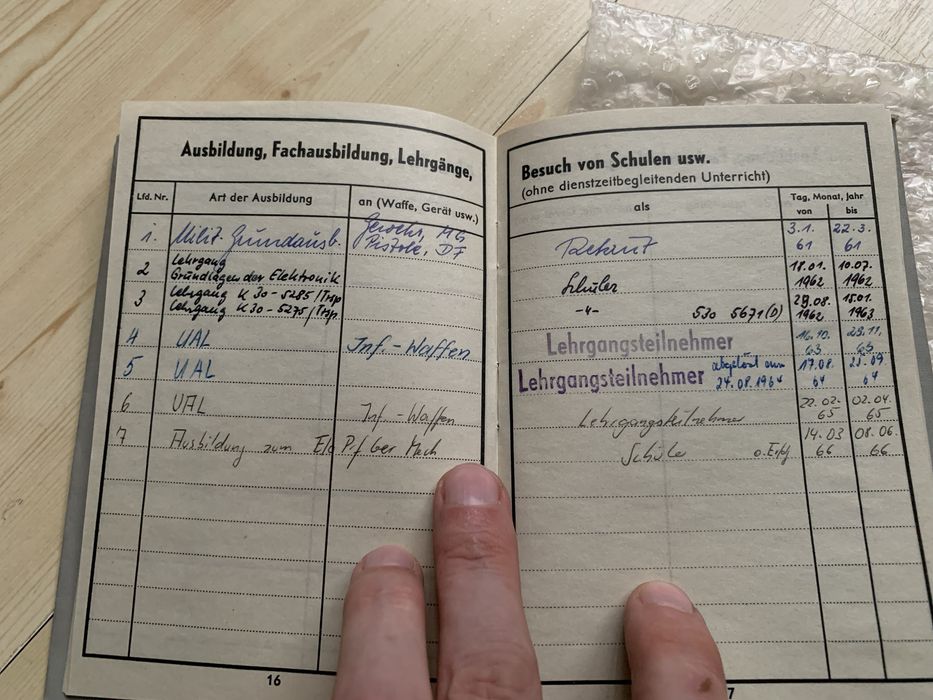 Ausbildung, Fachausbildung, Lehrgänge,
Lfd. Nr. Art der Ausbildung an (Waffe, Gerät usw.)
1. Milit. Grundausb. Gewehr, MG
Pistole,
2 Lehrgang
Grundlagen der Elektronik
3 Lehrgang K 30-5285/Trsp
Lehrgang K 30-5275/Trsp.
4 UAL Inf.-Waffen
5 UAL
6 UAL Inf.-Waffen
7 Ausbildung zum Elo Pf Ger Mech
16
Besuch von Schulen usw.
(ohne dienstzeitbegleitenden Unterricht)
als Tag, Monat, Jahr
von bis
Rekrut 3.1. 22.3.
61 61
Schüler 18.01. 10.07.
1962 1962
-"- 530 5671(D) 28.08. 15.01.
1962 1963
Lehrgangsteilnehmer 16.10. 29.11.
63 63
Lehrgangsteilnehmer abgelöst am 17.08.
24.08.1964 64 64
Lehrgangsteilnehmer 22.02. 02.04.
65 65
Schüle o. Erfg. 14.03 08.06.
66 66
7